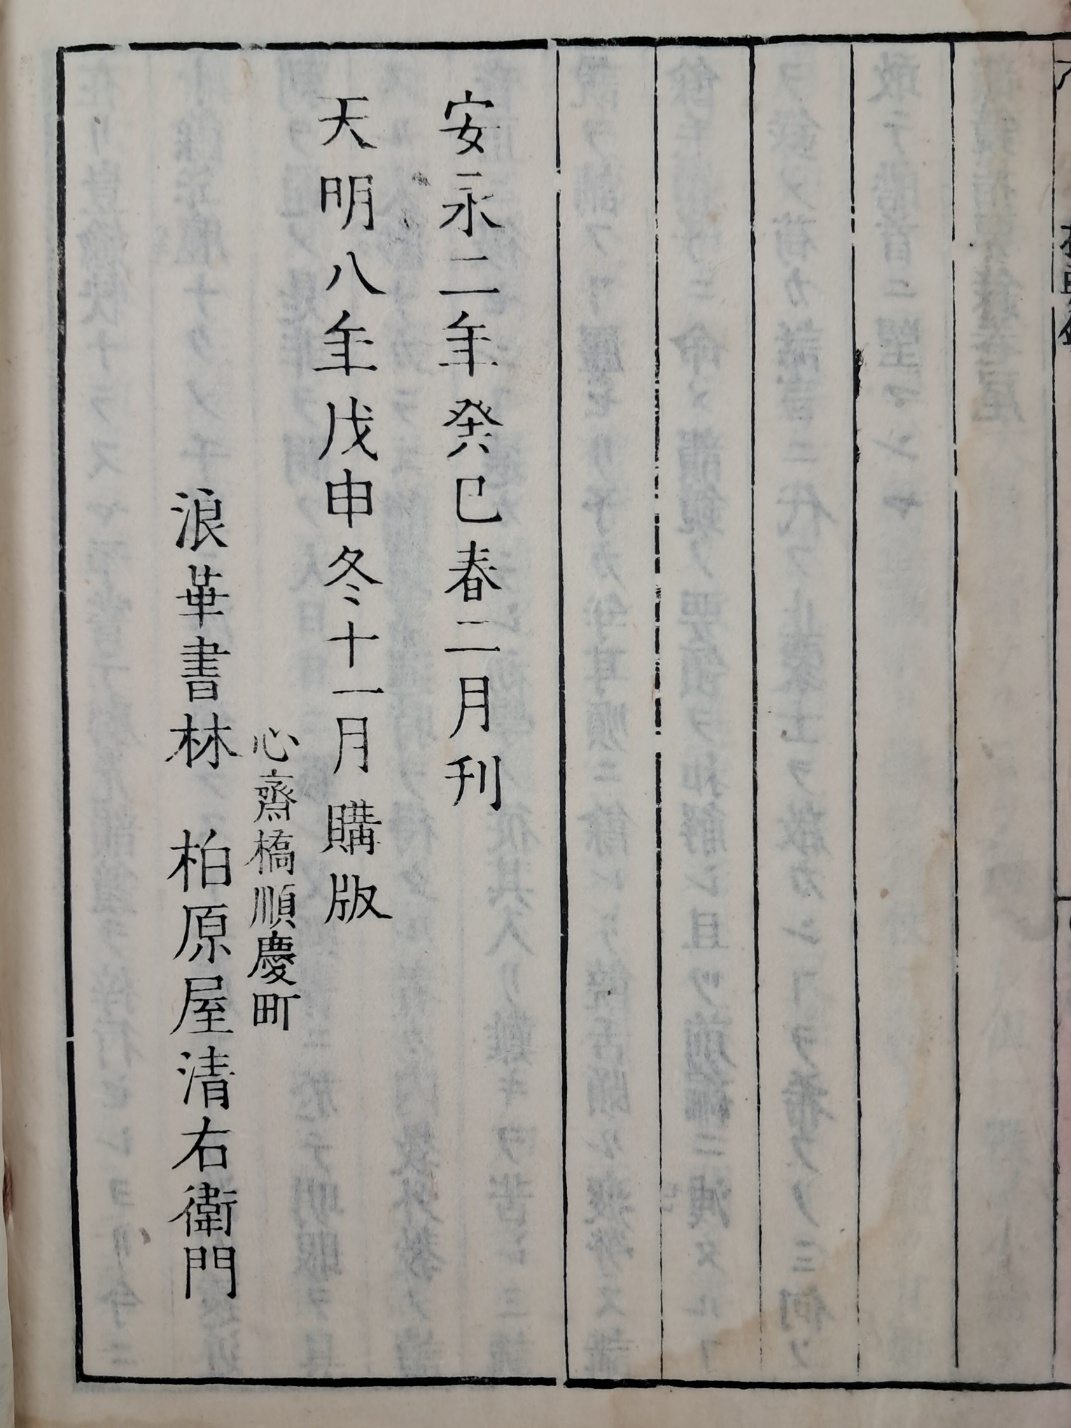 安永二年癸巳春二月刊
天明八年戊申冬十一月購版
心齋橋順慶町
浪華書林 柏原屋清右衛門